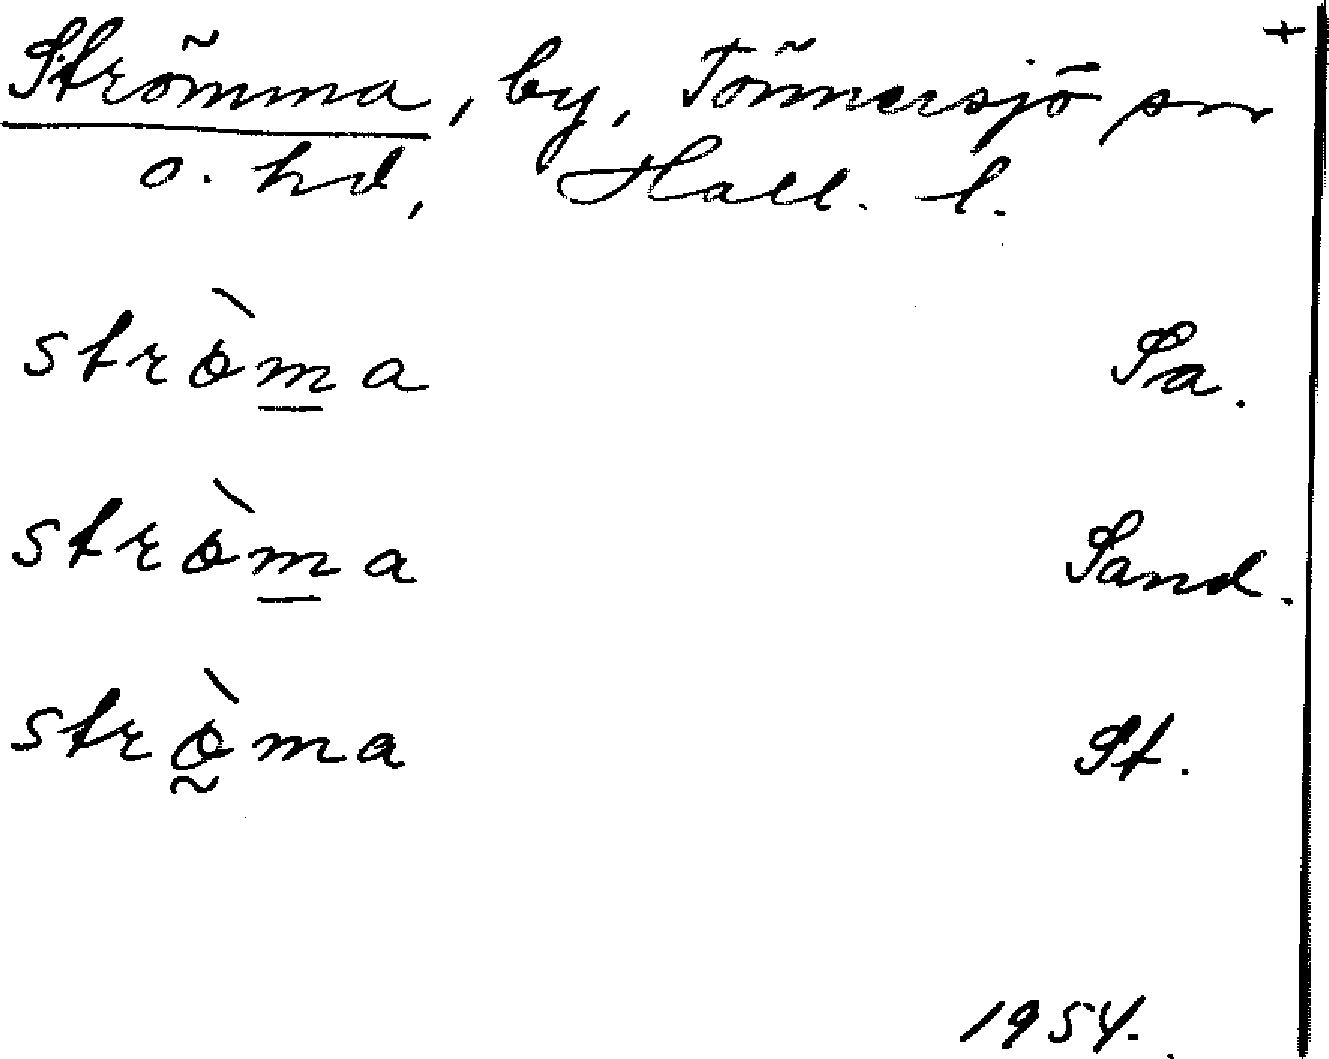 Strömma, by, Tönnersjö sn +
o. hd, Hall. l.
strò̀m̲a Sa.
strò̀m̲a Sand.
strò̰ma St.
1954.